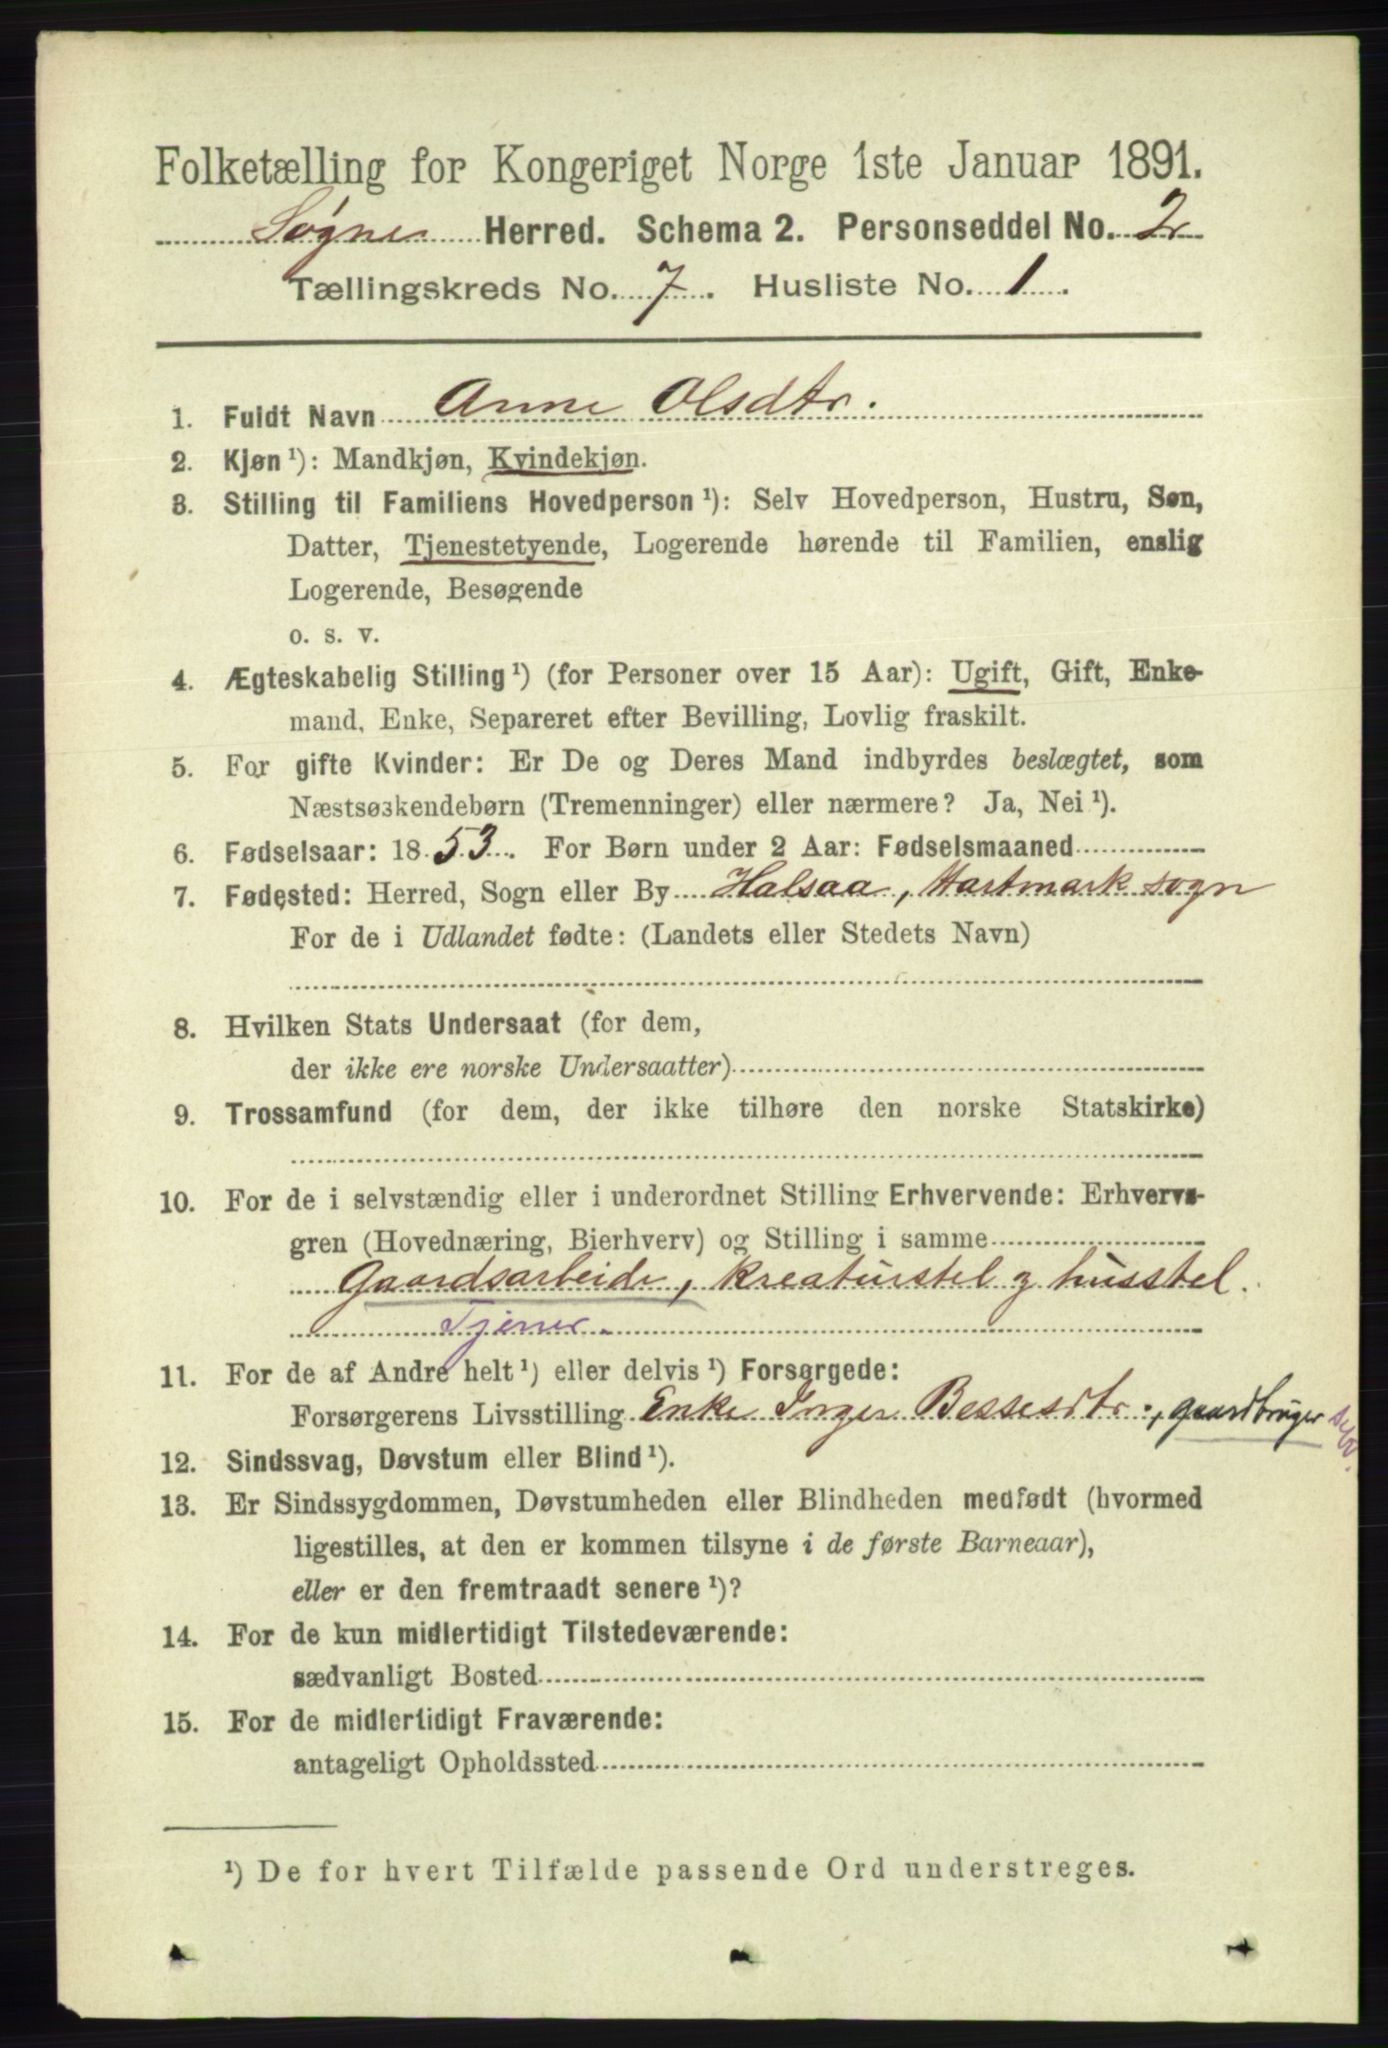 Folketælling for Kongeriget Norge 1ste Januar 1891.
Søgne Herred. Schema 2. Personseddel No. 2
Tællingskreds No. 7. Husliste No. 1.
1. Fuldt Navn Anne Olsdtr.
2. Kjøn ¹): Mandkjøn, Kvindekjøn.
3. Stilling til Familiens Hovedperson ¹): Selv Hovedperson, Hustru, Søn,
Datter, Tjenestetyende, Logerende hørende til Familien, enslig
Logerende, Besøgende
o. s. v.
4. Ægteskabelig Stilling ¹) (for Personer over 15 Aar): Ugift, Gift, Enke-
mand, Enke, Separeret efter Bevilling, Lovlig fraskilt.
5. For gifte Kvinder: Er De og Deres Mand indbyrdes beslægtet, som
Næstsøskendebørn (Tremenninger) eller nærmere? Ja, Nei ¹).
6. Fødselsaar: 1853. For Børn under 2 Aar: Fødselsmaaned
7. Fødested: Herred, Sogn eller By Halsaa, Hartmark sogn
For de i Udlandet fødte: (Landets eller Stedets Navn)
8. Hvilken Stats Undersaat (for dem,
der ikke ere norske Undersaatter)
9. Trossamfund (for dem, der ikke tilhøre den norske Statskirke)
10. For de i selvstændig eller i underordnet Stilling Erhvervende: Erhvervs-
gren (Hovednæring, Bierhverv) og Stilling i samme
Gaardsarbeide, kreaturstel og husstel.
Tjener.
11. For de af Andre helt ¹) eller delvis ¹) Forsørgede:
Forsørgerens Livsstilling Enke Inger Bessesdtr., gaardbruger selv.
12. Sindssvag, Døvstum eller Blind ¹).
13. Er Sindssygdommen, Døvstumheden eller Blindheden medfødt (hvormed
ligestilles, at den er kommen tilsyne i de første Barneaar),
eller er den fremtraadt senere ¹)?
14. For de kun midlertidigt Tilstedeværende:
sædvanligt Bosted
15. For de midlertidigt Fraværende:
antageligt Opholdssted
¹) De for hvert Tilfælde passende Ord understreges.